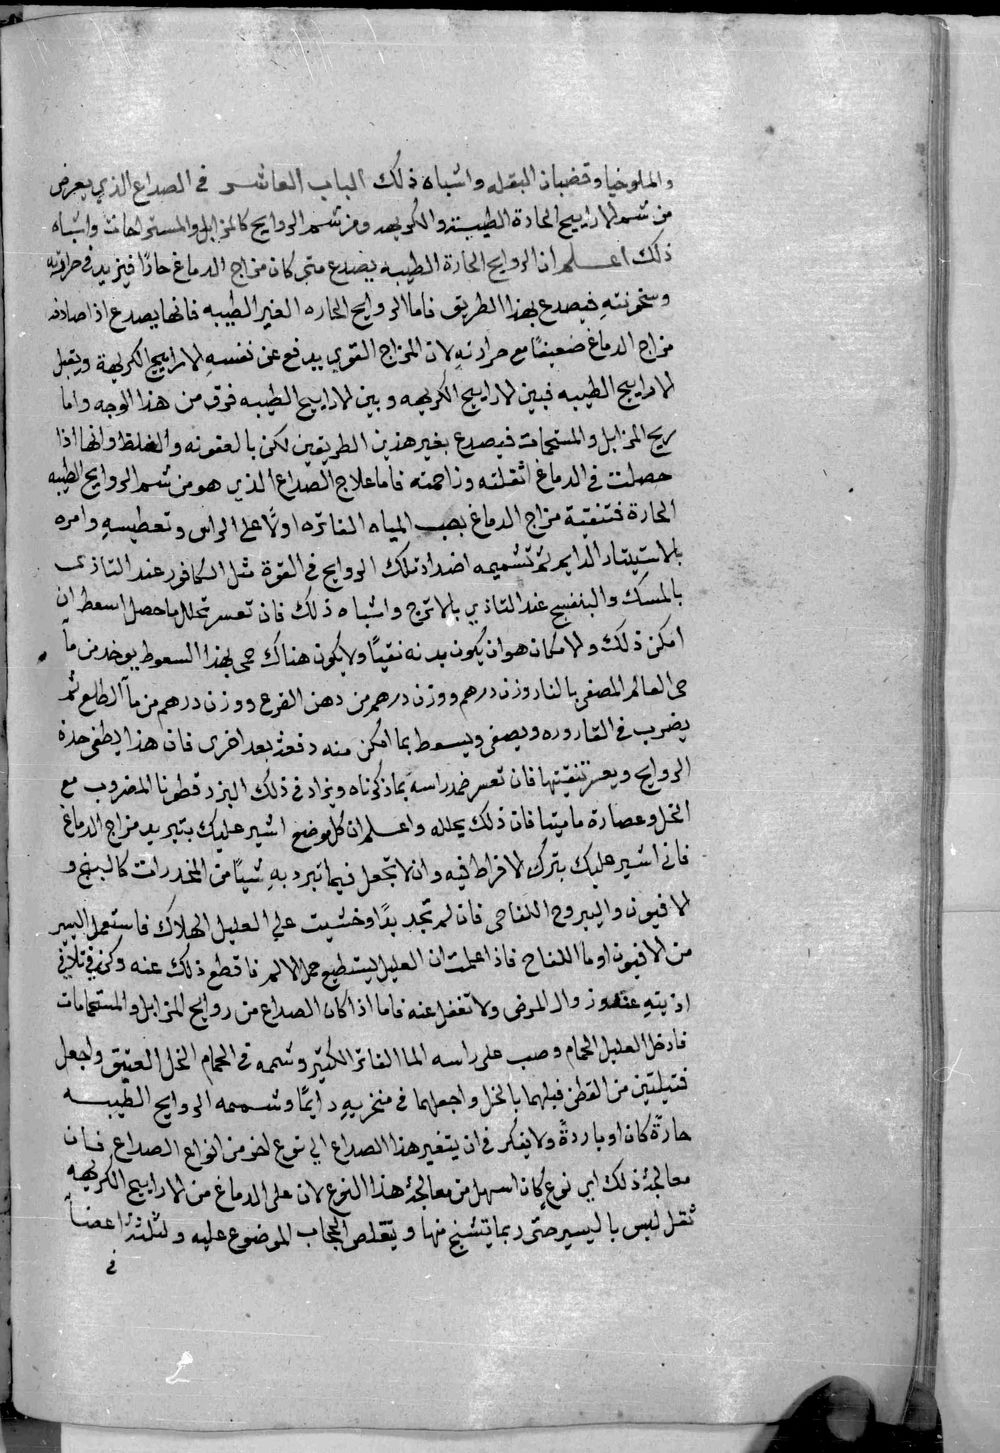 والملوخيا وقضبان البقله واشباه ذلك الباب العاشر في الصداع الذي يعرض
من شم الاراييح الحادة الطيبة والكريهه ومن شم الروايح كالمزابل والمستراحات واشباه
ذلك اعلم ان الروايح الحارة الطيبه يصدع متى كان مزاج الدماغ حارًا فيزيد في حرارته
وسخونته فيصدع بهذا الطريق فاما الروايح الحاره الغير الطيبه فانها يصدع اذا صادفه
مزاج الدماغ ضعيفًا مع حرارته لان المزاج القوي يدفع عن نفسه الاراييح الكريهة ويقبل
الاراييح الطيبه فبين الاراييح الكريهه وبين الاراييح الطيبه فرق من هذا الوجه واما
ريح المزابل والمستحمات فيصدع بغير هذين الطريقين لكن بالعفونه والغلظ اوانها اذا
حصلت في الدماغ اثقلته وزاحمته فاما علاج الصداع الذي هو من شم الروايح الطيبه
الحارة فتنقية مزاج الدماغ بصب المياه الفاتره اولًا على الراس وتعطيسه وامره
بالاستيثار الدايم ثم تشميمه اضداد تلك الروايح في القوة مثل الكافور عند التاذى
بالمسك والبنفسج عند التاذي بالاترج واشباه ذلك فان تعسر تحلل ما حصل اسعط ان
امكن ذلك والامكان هو ان يكون بدنه نقيًا ولا يكون هناك حمى بهذا السعوط يوخذ من مآ
حى العالم المصفى بالنار وزن درهم ووزن درهم من دهن القرع ووزن درهم من مآ الطلع ثم
يضرب في القاروره ويصفى ويسعط بما امكن منه دفعة بعد اخرى فان هذا يطفى حدة
الروايح ويعين تنقيتها فان تعسر ضمد راسه بما ذكرناه ويزاد في ذلك البزر قطونا المضروب مع
الخل وعصارة ماميثا فان ذلك يحلله واعلم ان كل موضع اشير عليك بتبريد مزاج الدماغ
فاني اشير عليك بترك الافراط فيه وان لا تجعل فيما تبرد به شيئًا من المخدرات كالبنج و
الافيون واليبروح اللفاحى فان لم تجد بدًا وخشيت على العليل الهلاك فاستعمل اليسير
من الافيون او مآ اللفاح فاذا علمت ان العليل يستطيع حمل الالم فاقطع ذلك عنه وكن في تلافي
اذيته عند زوال المرض ولا تغفل عنه فاما اذا كان الصداع من روايح المزابل والمستحمامات
فادخل العليل الحمام وصب على راسه الما الفاتر الكثير وشمه في الحمام الخل العتيق واجعل
فتيلتين من القطن فبلهما بالخل واجعلهما في منخريه دايمًا وشممه الروايح الطيبه
حارّة كان او باردةً ولا يفكر في ان يتغير هذا الصداع الى نوع اخر من انواع الصداع فان
معالجة ذلك اي نوع كان اسهل من معالجة هذا النوع لان على الدماغ من الاراييح الكريهه
ثقل ليس باليسير حتى ربما يتشنج منها ويتقلص الحجاب الموضوع عليه ولثلثة اعضآ
في